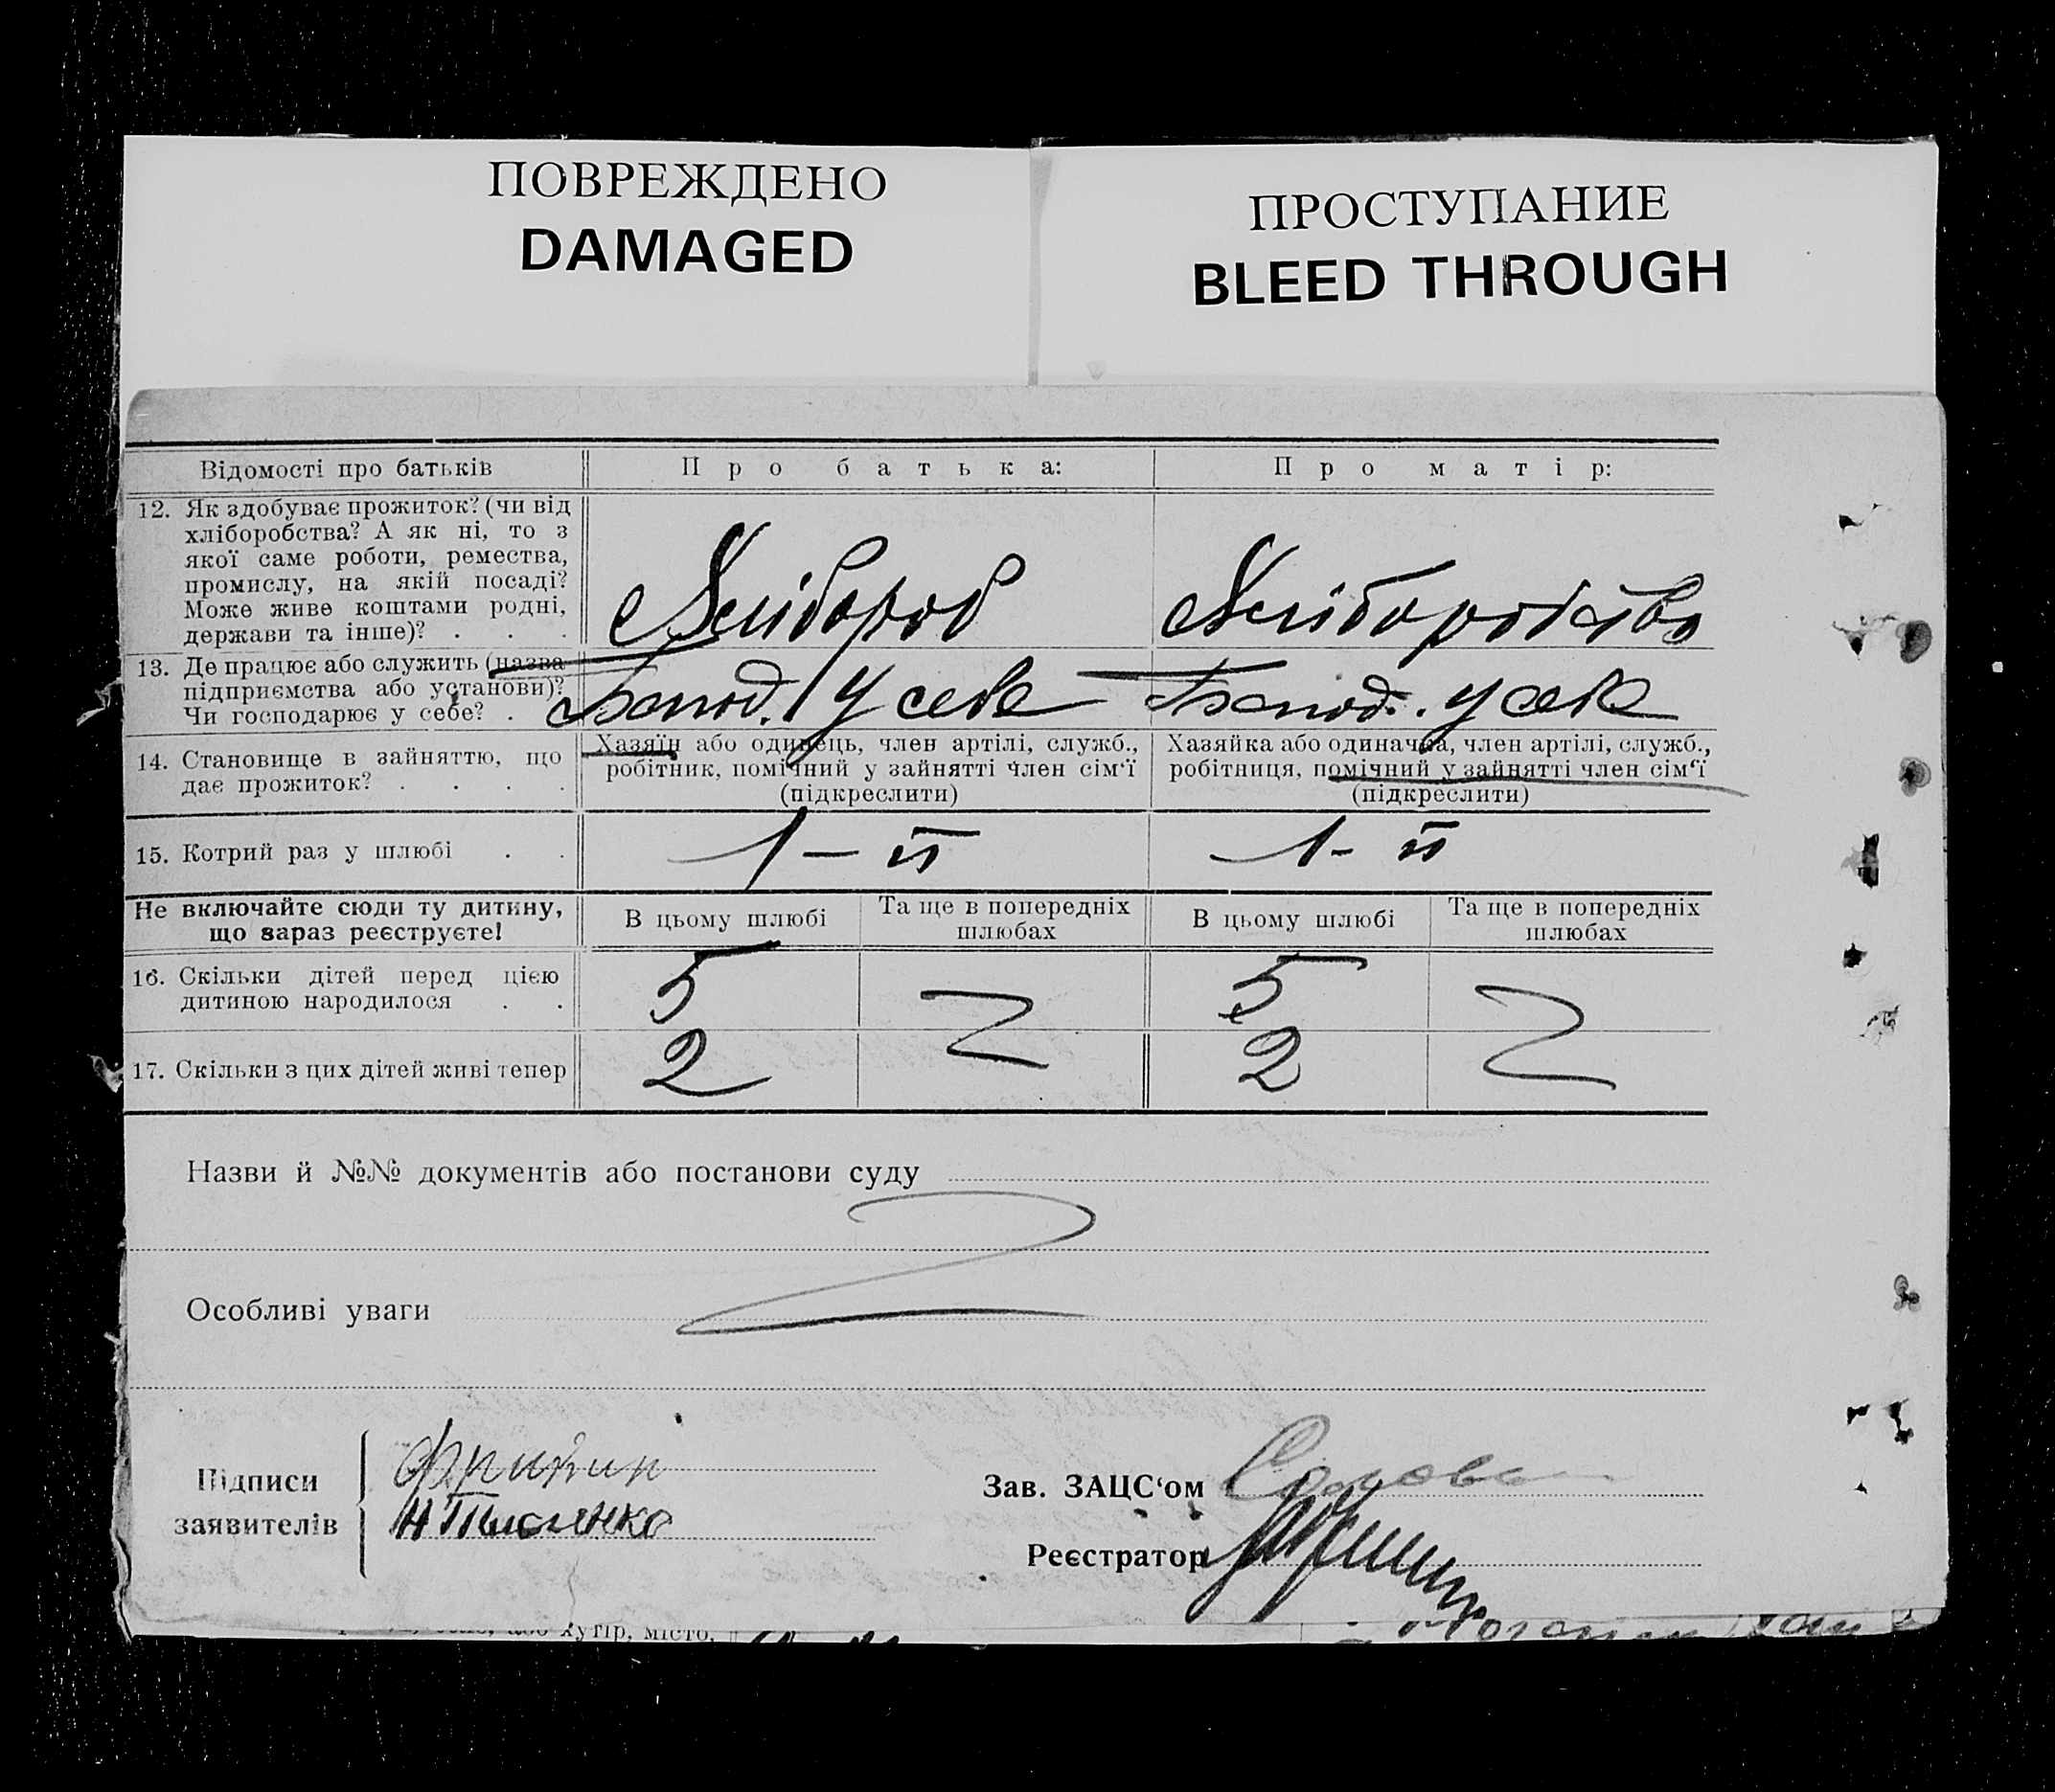 ПОВРЕЖДЕНО
DAMAGED
ПРОСТУПАНИЕ
BLEED THROUGH
Відомості про батьків
Про батька:
Про матір:
12. Як здобуває прожиток? (чи від
хліборобства? А як ні, то з
якої саме роботи, ремества,
промислу, на якій посаді?
Може живе коштами родні,
держави та інше)? . . .
Хлібороб
Хліборобство
13. Де працює або служить (назва
підприємства або установи)?
Чи господарює у себе? .
Господ. у себе
Господ. у себе
14. Становище в зайняттю, що
дає прожиток? . . . .
Хазяїн або одинець, член артілі, служб.,
робітник, помічний у зайнятті член сім'ї
(підкреслити)
Хазяйка або одиначка, член артілі, служб.,
робітниця, помічний у зайнятті член сім'ї
(підкреслити)
15. Котрий раз у шлюбі . .
1-й
1-й
Не включайте сюди ту дитину,
що зараз реєструєте!
В цьому шлюбі
Та ще в попередніх
шлюбах
В цьому шлюбі
Та ще в попередніх
шлюбах
16. Скільки дітей перед цією
дитиною народилося . .
5
5
17. Скільки з цих дітей живі тепер
2
2
Назви й №№ документів або постанови суду
Особливі уваги
Підписи
заявителів
Зав. ЗАЦС'ом
Реєстратор
хутір, місто,